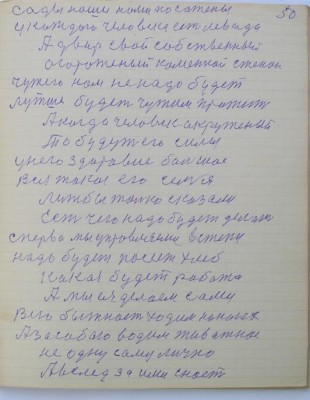 сады наши нови посажены 50
у каждого человека ест левада
А двир свой собственный
огороженый каменой стеной
чужего нам не надо будет
лутше будет чужим прожит
А когда человек окружоный
То будут его силы
у него здоровие большое
Вся такая его семия
лижбы толко сказали
Ест чего надо будет делат
сперва мы управляеми в степи
надо будет посеет хлеб
какая будет работа
А мы ея делаем сами
В его бытност ходим на ногах
А за собою водим животное
не одну саму лично
А вслед за ими